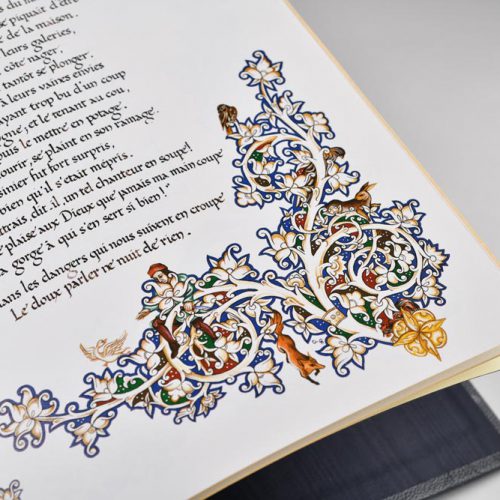 du
se piquait d'être
de la maison.
leurs galeries,
côte nager,
tantôt se plonger,
à leurs vaines envies
ayant trop bu d'un coup
gne; et le tenant au cou,
uis le mettre en potage.
ourir, se plaint en son ramage.
sinier fut fort surpris,
bien qu'il s'était mépris.
ttrais, dit-il, un tel chanteur en soupe!
plaise aux Dieux que jamais ma main coupe
a gorge à qui s'en sert si bien!"
ans les dangers qui nous suivent en croupe
Le doux parler ne nuit de rien.